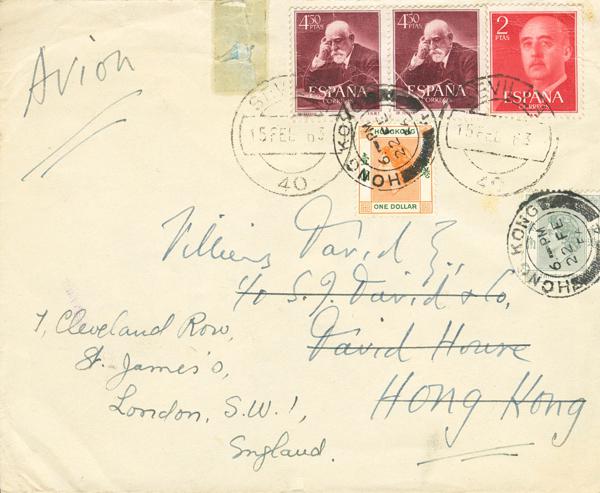 Avion
4,50
PTAS
ESPAÑA
CORREOS
4,50
PTAS
ESPAÑA
CORREOS
2
PTAS
ESPAÑA
CORREOS
15 FEB 63
40
15 FEB 63
40
HONG KONG
6 - PM
22 FE
HONGKONG
ONE DOLLAR
HONG KONG
6 - PM
22 FE
Villiers David E
c/o S. J. David & Co,
David House
Hong Kong
7, Cleveland Row,
St. James's,
London, S.W.1,
England.